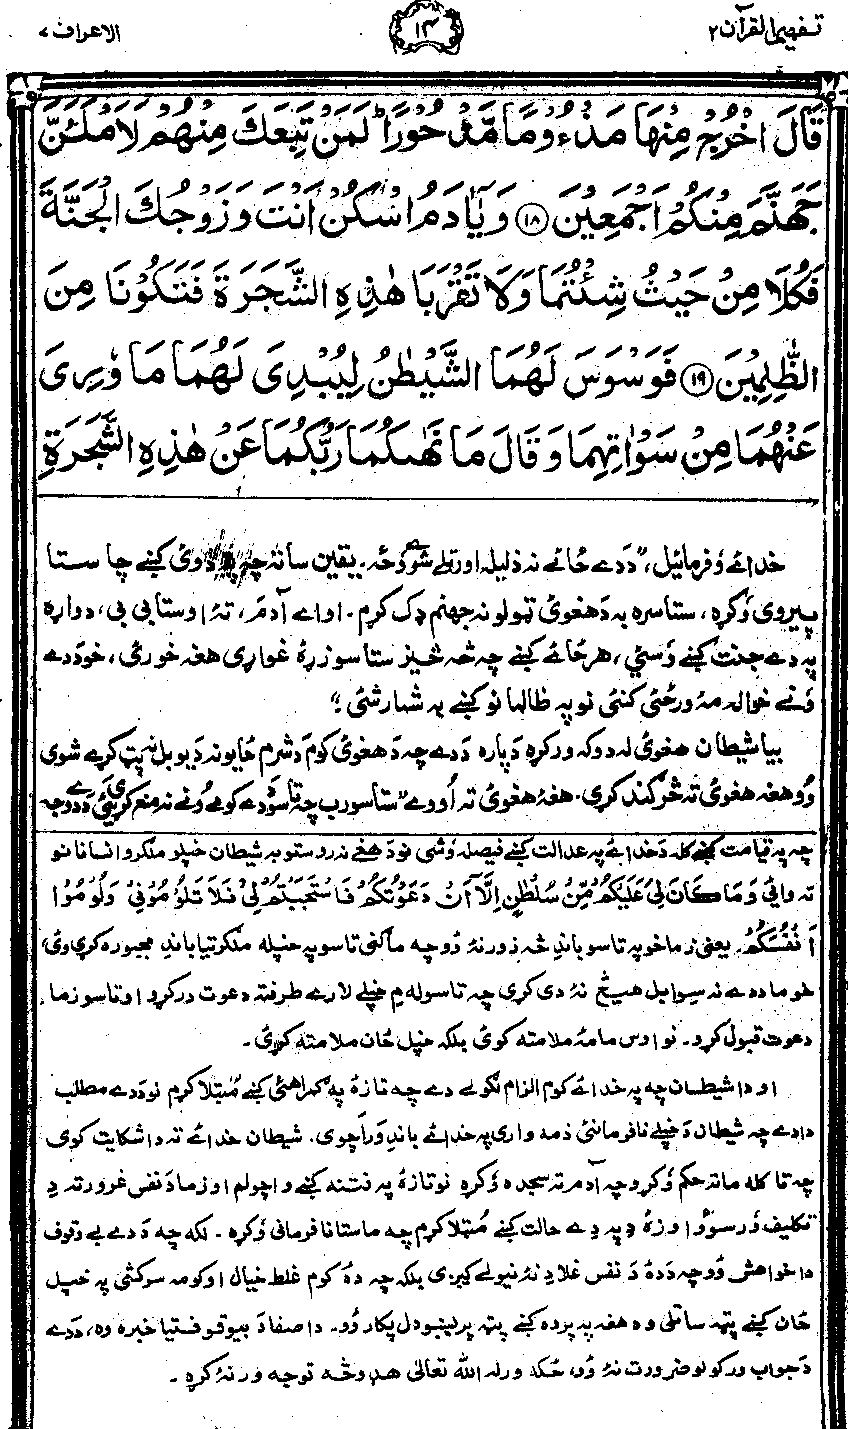 تفهیم القرآن ۲
۱۴
الاعراف ۷
قَالَ اخْرُجْ مِنْهَا مَذْءُوْمًا مَّدْحُوْرًا ؕ لَمَنْ تَبِعَكَ مِنْهُمْ لَاَمْلَـَٔنَّ
جَهَنَّمَ مِنْكُمْ اَجْمَعِيْنَ ۝۱۸ وَيٰٓاٰدَمُ اسْكُنْ اَنْتَ وَزَوْجُكَ الْجَنَّةَ
فَكُلَا مِنْ حَيْثُ شِئْتُمَا وَلَا تَقْرَبَا هٰذِهِ الشَّجَرَةَ فَتَكُوْنَا مِنَ
الظّٰلِمِيْنَ ۝۱۹ فَوَسْوَسَ لَهُمَا الشَّيْطٰنُ لِيُبْدِيَ لَهُمَا مَا وٗرِيَ
عَنْهُمَا مِنْ سَوْاٰتِهِمَا وَقَالَ مَا نَهٰىكُمَا رَبُّكُمَا عَنْ هٰذِهِ الشَّجَرَةِ
خدائے وَفرمائیل، "دَدے ځائے نه ذلیله اورټلے شوےوځه. یقین ساته چه دوئ کښے چا ستا
پیروی وَکړه، ستا سره به دَهغوئ ټولو نه جهنم ډک کړم. او اے آدمَ، تهٔ اوستا بی بی، دواړه
په دے جنت کښے وَسئ، هر ځائے کښے چه څه څیز ستاسو زړهٔ غواړی هغه خورئ، خو دَدے
وَنے خوا له مهٔ ورځئ کنی نو په ظالمانو کښے به شمار شئ"
بیا شیطان هغوئ له دوکه ورکړه دَپاره دَدے چه دَهغوئ کوم دَشرم ځایونه دَ یو بل نه پټ کړے شوی
وُو هغه هغوئ ته څرګند کړی. هغهٔ هغوئ ته اُووے "ستاسو رب چه تاسو دَدے کومے وُنے نه منع کړی یئ دَدے وجه
چه په قیامت کښے کله دَخدائے په عدالت کښے فیصله وَشی نو دَهغے نه روستو به شیطان خپلو ملګرو انسانانو
ته وائی وَمَا كَانَ لِيَ عَلَيْكُمْ مِّنْ سُلْطٰنٍ اِلَّآ اَنْ دَعَوْتُكُمْ فَاسْتَجَبْتُمْ لِيْ فَلَا تَلُوْمُوْنِيْ وَلُوْمُوْا
اَنْفُسَكُمْ. یعنی زما خو په تاسو باندِ څه زور نهٔ وُو چه ما کنی تاسو په خپله ملګرتیا باندِ مجبوره کړی وئ،
خو ما ددے نه سِوا بل هیڅ نهٔ دی کړی چه تاسو له مِ خپلے لارے طرفته دعوت درکړو او تاسو زما
دعوت قبول کړو. نو اوس ما مهٔ ملامته کوئ بلکه خپل ځان ملامته کړئ.
او دا شیطان چه په خدائے کوم الزام لګولے دے چه تا زهٔ په ګمراهئ کښے مُبتلا کړم نو دَدے مطلب
دا دے چه شیطان دَخپلے نافرمانئ ذمه واری په خدائے باندِ وراچوی. شیطان خدائے ته دا شکایت کوی
چه تا کله ما ته حکم وَکړو چه آدم ته سجده وَکړه نو تا زهٔ په فتنه کښے واچولم او زما دَنفس غرور ته دِ
تکلیف وَرسوؤ او زهٔ دِ په دے حالت کښے مُبتلا کړم چه ما ستا نافرمانی وَکړه. لکه چه دَدے بے وقوف
دا خواهش وُو چه دَدهٔ دَ نفس غلا دِ نهٔ نیولے کیږی بلکه چه دهٔ کوم غلط خیال او کومه سرکشی په خپل
ځان کښے پټه ساتلی وه هغه په پرده کښے پټه پریښودل پکار وُو. دا صفا دَ بیوقوفتیا خبره وه، دَدے
دَجواب ورکولو ضرورت نهٔ وُو، ځکه ورله الله تعالیٰ هډو څه توجه ورنهٔ کړه.